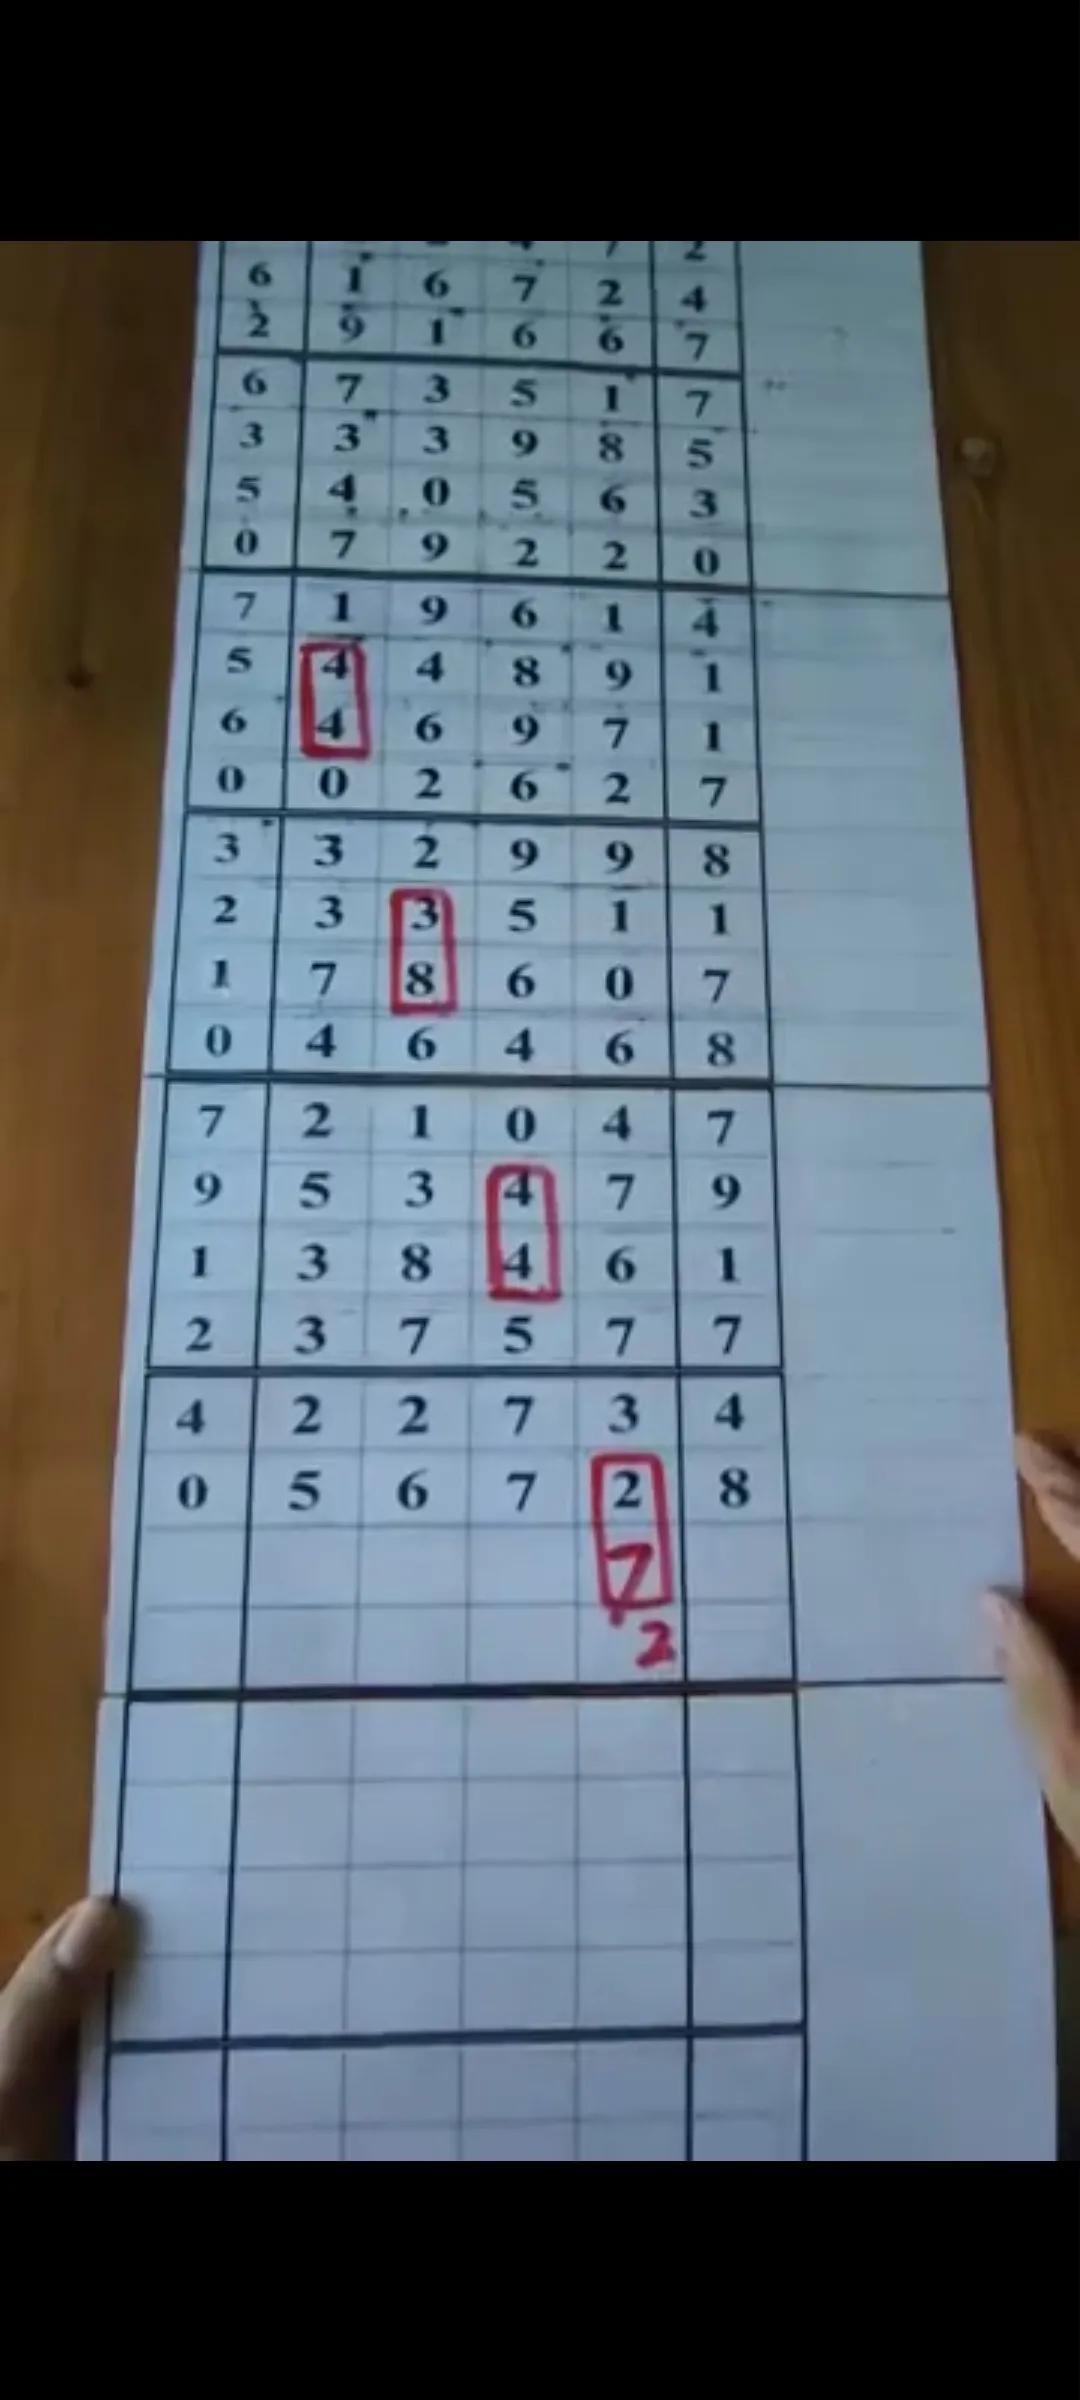 2
6 1 6 7 2 4
2 9 1 6 6 7
6 7 3 5 1 7
3 3 3 9 8 5
5 4 0 5 6 3
0 7 9 2 2 0
7 1 9 6 1 4
5 4 4 8 9 1
6 4 6 9 7 1
0 0 2 6 2 7
3 3 2 9 9 8
2 3 3 5 1 1
1 7 8 6 0 7
0 4 6 4 6 8
7 2 1 0 4 7
9 5 3 4 7 9
1 3 8 4 6 1
2 3 7 5 7 7
4 2 2 7 3 4
0 5 6 7 2 8
7
2